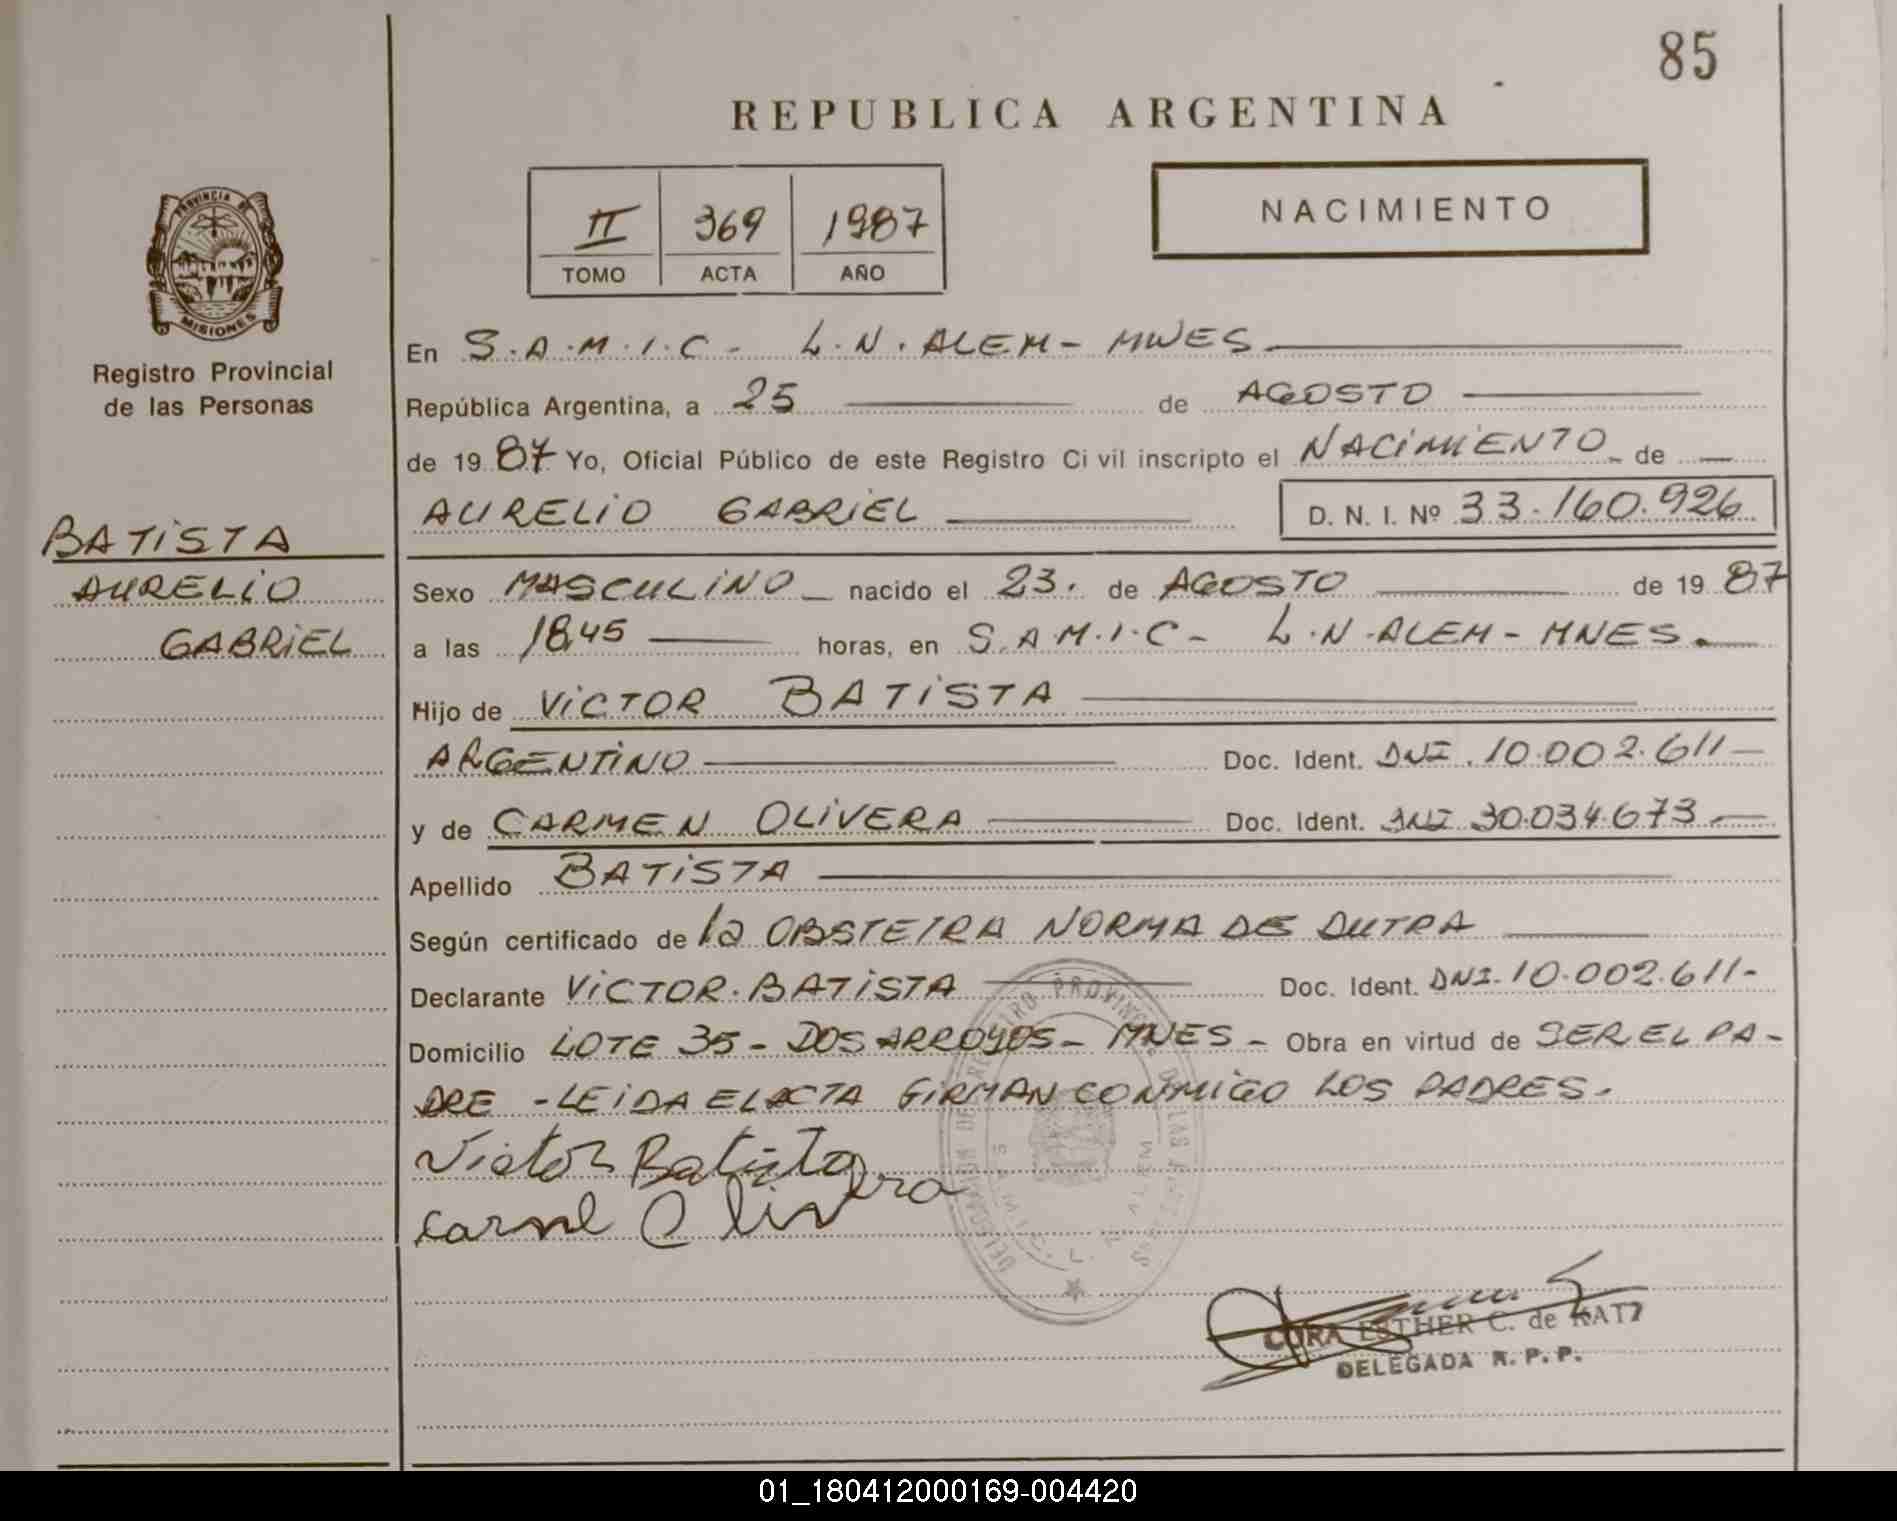 85
REPUBLICA ARGENTINA
II 369 1987
TOMO ACTA AÑO
NACIMIENTO
PROVINCIA DE
MISIONES
Registro Provincial
de las Personas
BATISTA
AURELIO
GABRIEL
En S.A.M.I.C - L.N.ALEM - MNES
República Argentina, a 25 de AGOSTO
de 1987 Yo, Oficial Público de este Registro Civil inscripto el NACIMIENTO de
AURELIO GABRIEL D. N. I. Nº 33.160.926
Sexo MASCULINO nacido el 23. de AGOSTO de 1987
a las 18,45 horas, en S.A.M.I.C - L.N.ALEM - MNES.
Hijo de VICTOR BATISTA
ARGENTINO Doc. Ident. DNI. 10.002.611
y de CARMEN OLIVERA Doc. Ident. DNI 30.034.673
Apellido BATISTA
Según certificado de la OBSTETRA NORMA DE DUTRA
Declarante VICTOR.BATISTA Doc. Ident. DNI.10.002.611-
Domicilio LOTE 35 - DOS ARROYOS - MNES - Obra en virtud de SER EL PA-
DRE - LEIDA EL ACTA FIRMAN CONMIGO LOS PADRES.
Victor Batista
Olivera
CORA ESTHER C. de KATZ
DELEGADA R. P. P.
01_180412000169-004420